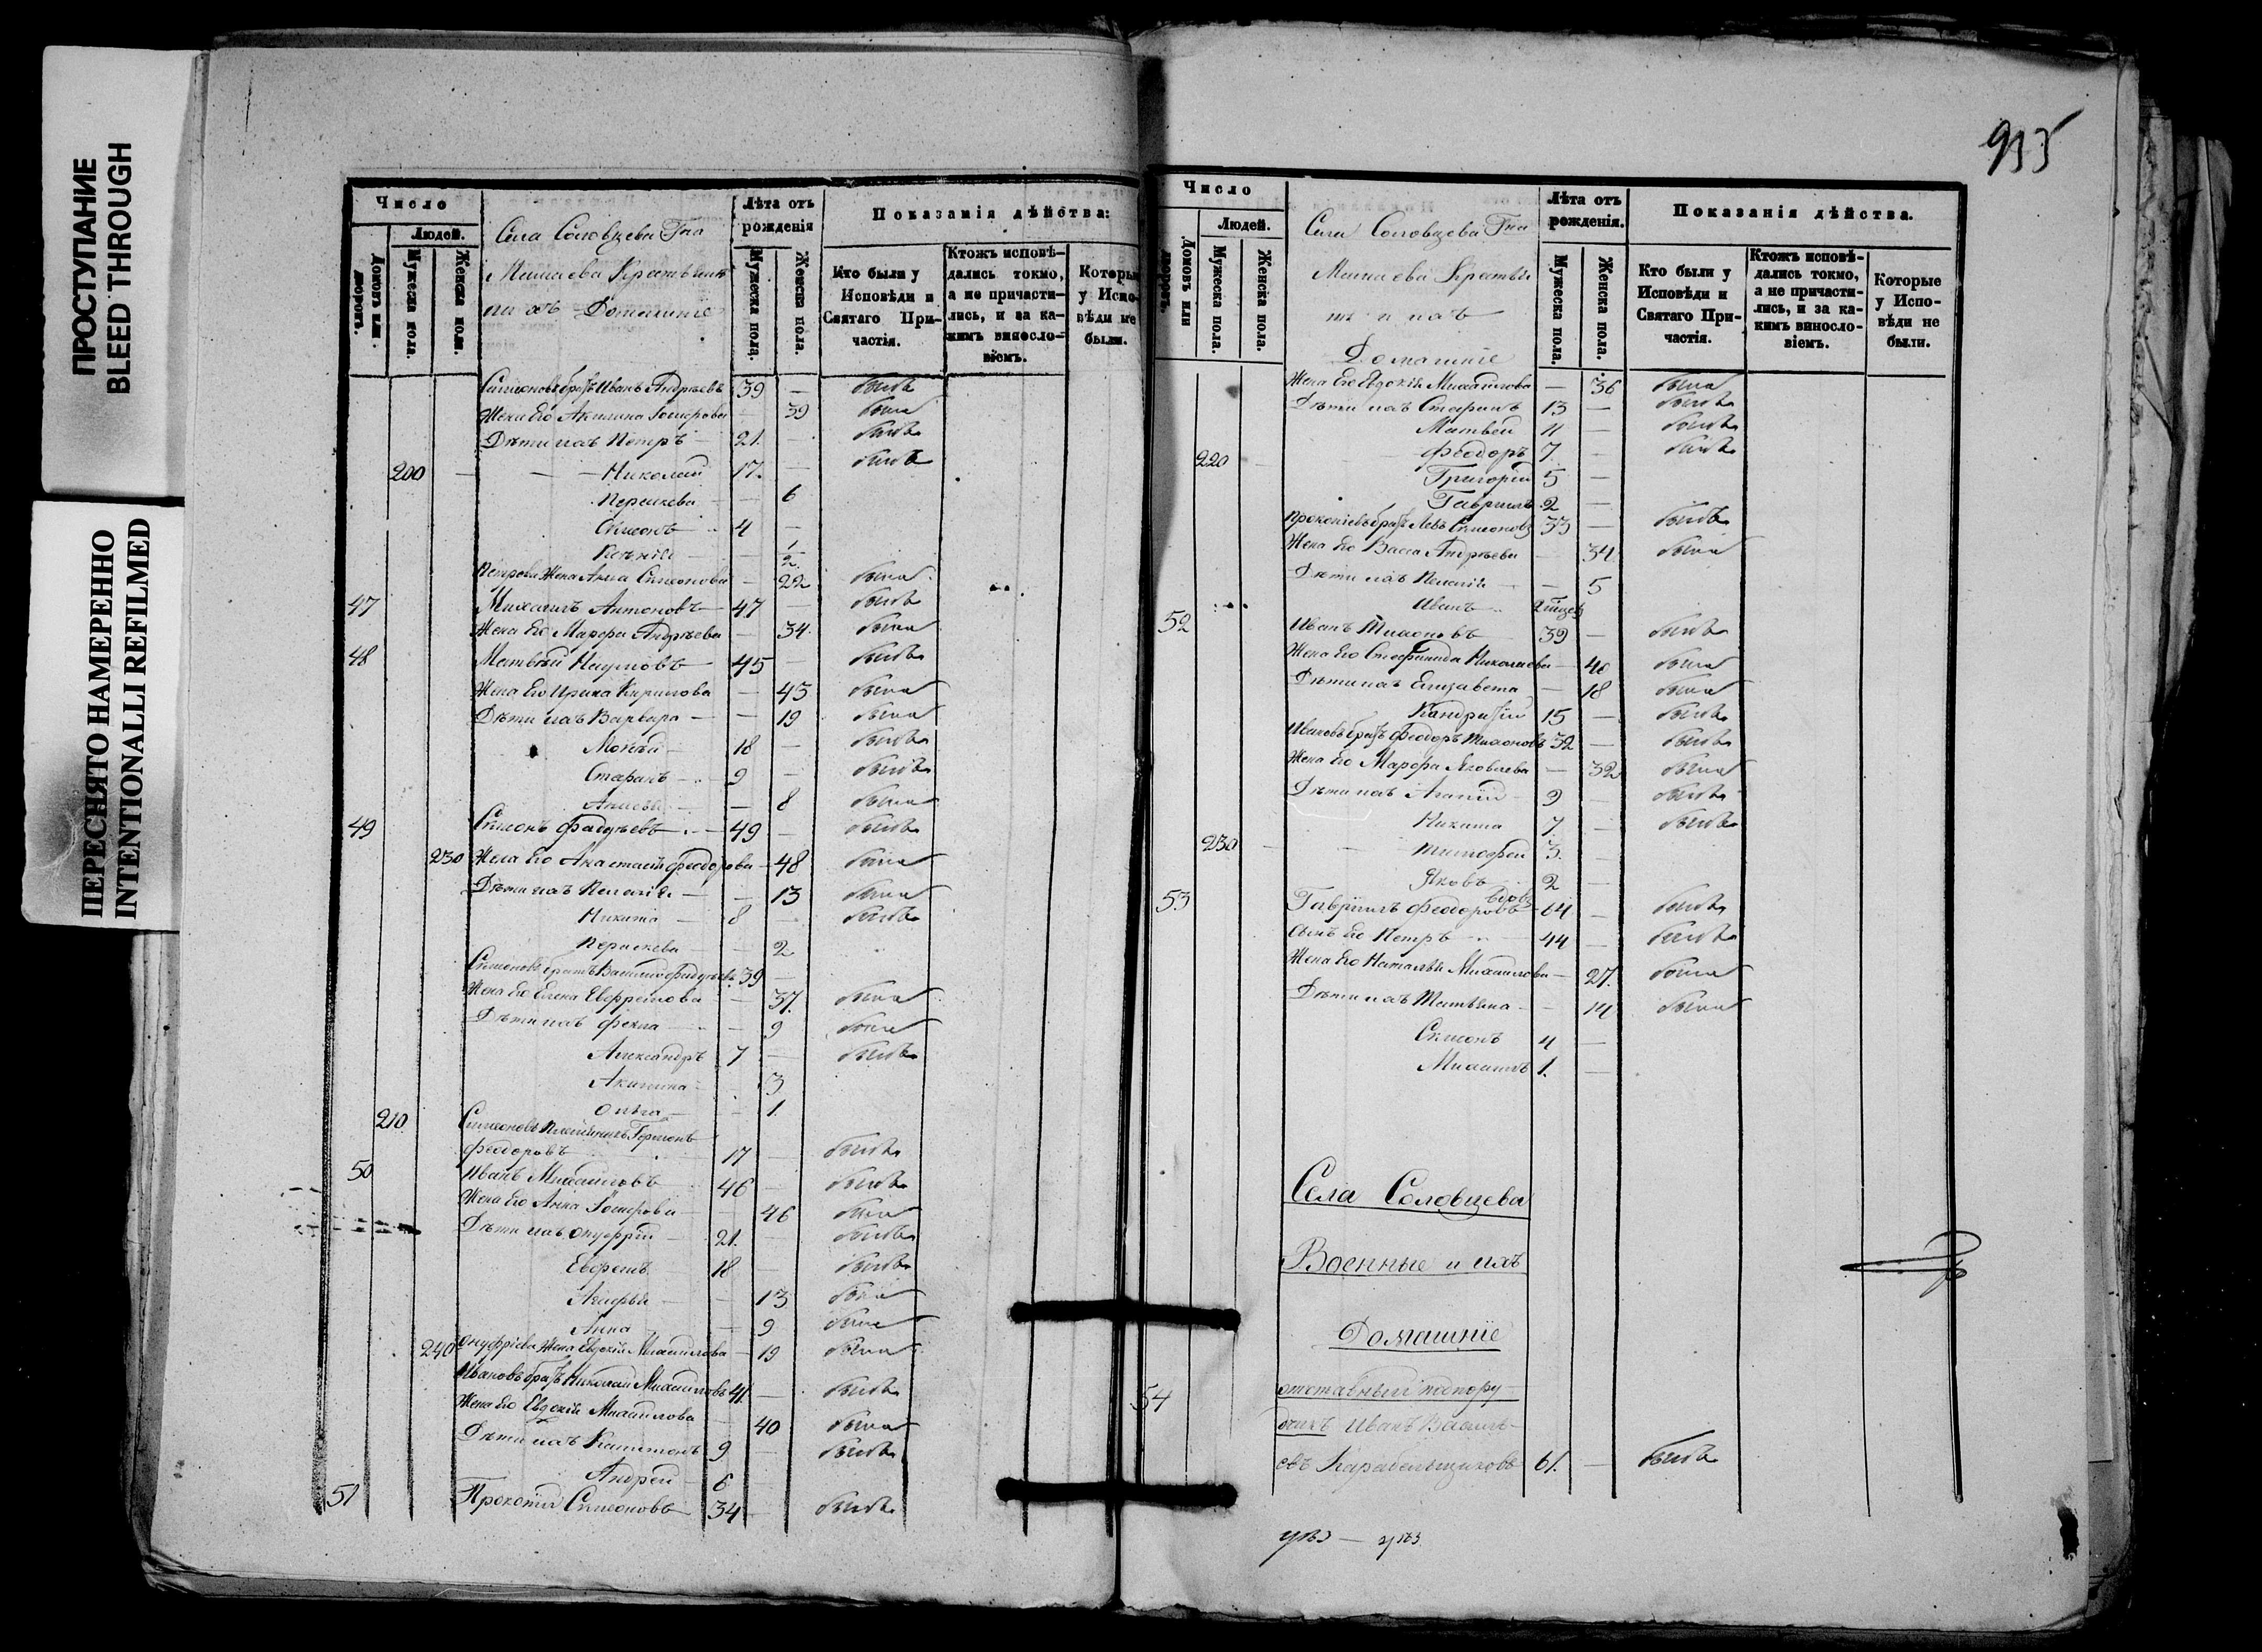 ПРОСТУПАНИЕ
BLEED THROUGH
ПЕРЕСНЯТО НАМЕРЕННО
INTENTIONALLI REFILMED
Число
Людей.
Домовъ или дворовъ.
Мужеска пола.
Женска пола.
Села Соловцева Гна
Минаева Крестьяне
их Домашніе
Лѣта отъ рожденія
Мужеска пола.
Женска пола.
Показанія дѣйства:
Кто были у Исповѣди и Святаго Причастія.
Ктожъ исповѣдались токмо, а не причастились, и за какимъ винословіемъ.
Которые у Исповѣди не были.
Симеоновъ братъ Иванъ Андреевъ 39 — былъ
Жена Его Акилина 39 была
Дѣти ихъ Петръ 21. былъ
200 — Николай 17. — былъ
Параскева — 6
Симеонъ 4 —
Ксенія — 1/2
Петрова Жена Анна Симеонова — 22 была
47 Михаилъ Антоновъ 47 — былъ
Жена Его Марфа Андреева — 34. была
48 Матвѣй Наумовъ 45 — былъ
Жена Его Ирина Кирилова — 45 была
Дѣти ихъ Варвара — 19 была
Мойсей 18 — былъ
Стефанъ 9 — былъ
— 8 была
49 Симеонъ Фадѣевъ 49 — былъ
230 Жена Его Анастасія Феодорова — 48 была
Дѣти ихъ Пелагія — 13 была
Никита 8 — былъ
Параскева — 2
Симеоновъ братъ Василій Фадѣевъ 39 —
Жена Его Елена Ефремова — 37. была
Дѣти ихъ Фекла — 9 была
Александръ 7 — былъ
Акилина 3
Ольга — 1.
210 Симеоновъ Племяникъ
Феодоровъ 17 — былъ
50 Иванъ Михаиловъ 46 — былъ
Жена Его Анна — 46 была
Дѣти ихъ Онуфрій 21. — былъ
Ефремъ 18 — былъ
Агафья — 13 была
Анна — 9 была
240 Онуфріева Жена Евдокія Михаилова — 19 была
Ивановъ братъ Николай Михаиловъ 41 — былъ
Жена Его Евдокія Михаилова — 40 была
Дѣти ихъ Капитонъ 9 — былъ
Андрей 6
51 Прокопій Симеоновъ 34 — былъ
935
Число
Людей.
Домовъ или дворовъ.
Мужеска пола.
Женска пола.
Села Соловцева Гна
Минаева Крестья
не и ихъ
Домашніе
Лѣта отъ рожденія.
Мужеска пола.
Женска пола.
Показанія дѣйства.
Кто были у Исповѣди и Святаго Причастія.
Ктожъ исповѣдались токмо, а не причастились, и за какимъ винословіемъ.
Которые у Исповѣди не были.
Жена Его Евдокія Михаилова — 36 была
Дѣти ихъ Стефанъ 13 — былъ
Матвей 11 — былъ
Феодоръ 7. — былъ
220 — Григорій 5 —
Гавріилъ 2 —
Прокопіевъ братъ Левъ Симеоновъ 33 — былъ
Жена Его Васса Андреева — 34. была
Дѣти ихъ Пелагія — 5
Иванъ
52 Иванъ Тихоновъ 39 — былъ
Жена Его Стефанида Николаева — 40 была
Дѣти ихъ Елизавета — 18 была
Кондратій 15 — былъ
Ивановъ братъ Феодоръ Тихоновъ 32 — былъ
Жена Его Марфа Яковлева — 32 была
Дѣти ихъ Агапій 9 — былъ
Никита 7. — былъ
230 — Тимофей 3. —
Яковъ 2 —
53 Гавріилъ Феодоровъ вдовъ 64 — былъ
Сынъ Его Петръ 44 — былъ
Жена Его Наталья Михаилова — 27. была
Дѣти ихъ Татьяна — 14 была
Симеонъ 4 —
Михаилъ 1. —
Села Соловцева
Военные и ихъ
Домашніе
54 отставный подпору
чикъ Иванъ Василь
евъ Карабельщиковъ 61. — былъ